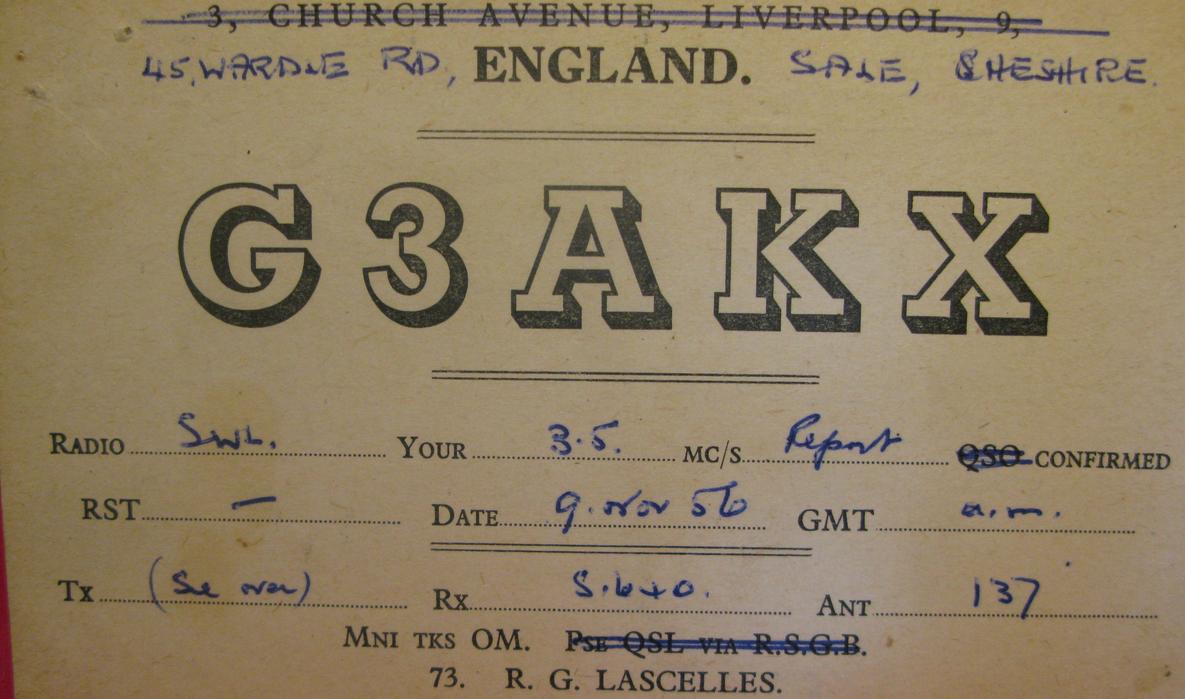 3, CHURCH AVENUE, LIVERPOOL, 9,
45, WARDLE RD, ENGLAND. SALE, CHESHIRE.
G3AKX
RADIO SWL. YOUR 3.5. MC/S Report QSO CONFIRMED
RST — DATE 9. Nov 56 GMT a.m.
Tx (See over) Rx S.640. ANT 137
MNI TKS OM. PSE QSL VIA R.S.G.B.
73. R. G. LASCELLES.